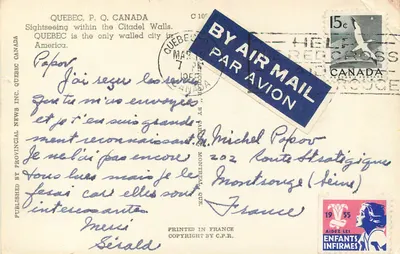 QUEBEC, P. Q. CANADA
Sightseeing within the Citadel Walls.
QUEBEC is the only walled city in
America.
C 10
QUEBEC
MAR
7
CANADA
BY AIR MAIL
PAR AVION
15c
POSTES POSTAGE
CANADA
HELP
RED CROSS
CROIX ROUGE
Popov
J'ai reçu les
que tu m'as envoyées
et je t'en suis grande
ment reconnaissant.
Je ne l'ai pas encore
tous lus mais je le
ferai car elles sont
intéressantes
Merci
Gérald
M. Michel Popov
202 route Stratégique
Montrouge (Seine)
France
PUBLISHED BY PROVINCIAL NEWS INC. QUEBEC CANADA
PRINTED IN FRANCE
COPYRIGHT BY C.P.R.
1955
AIDEZ LES
ENFANTS
INFIRMES